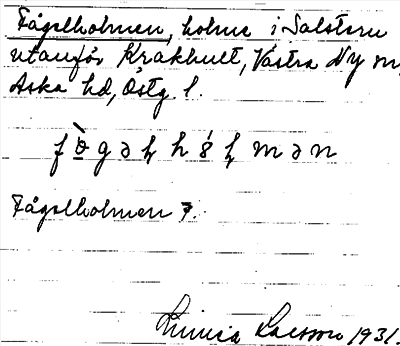 Fågelholmen, holme i Salstern
utanför Krakhult, Västra Ny sn,
Aska hd, Östg. l.
Fågelholmen 7.
Linnea Larsson 1931.